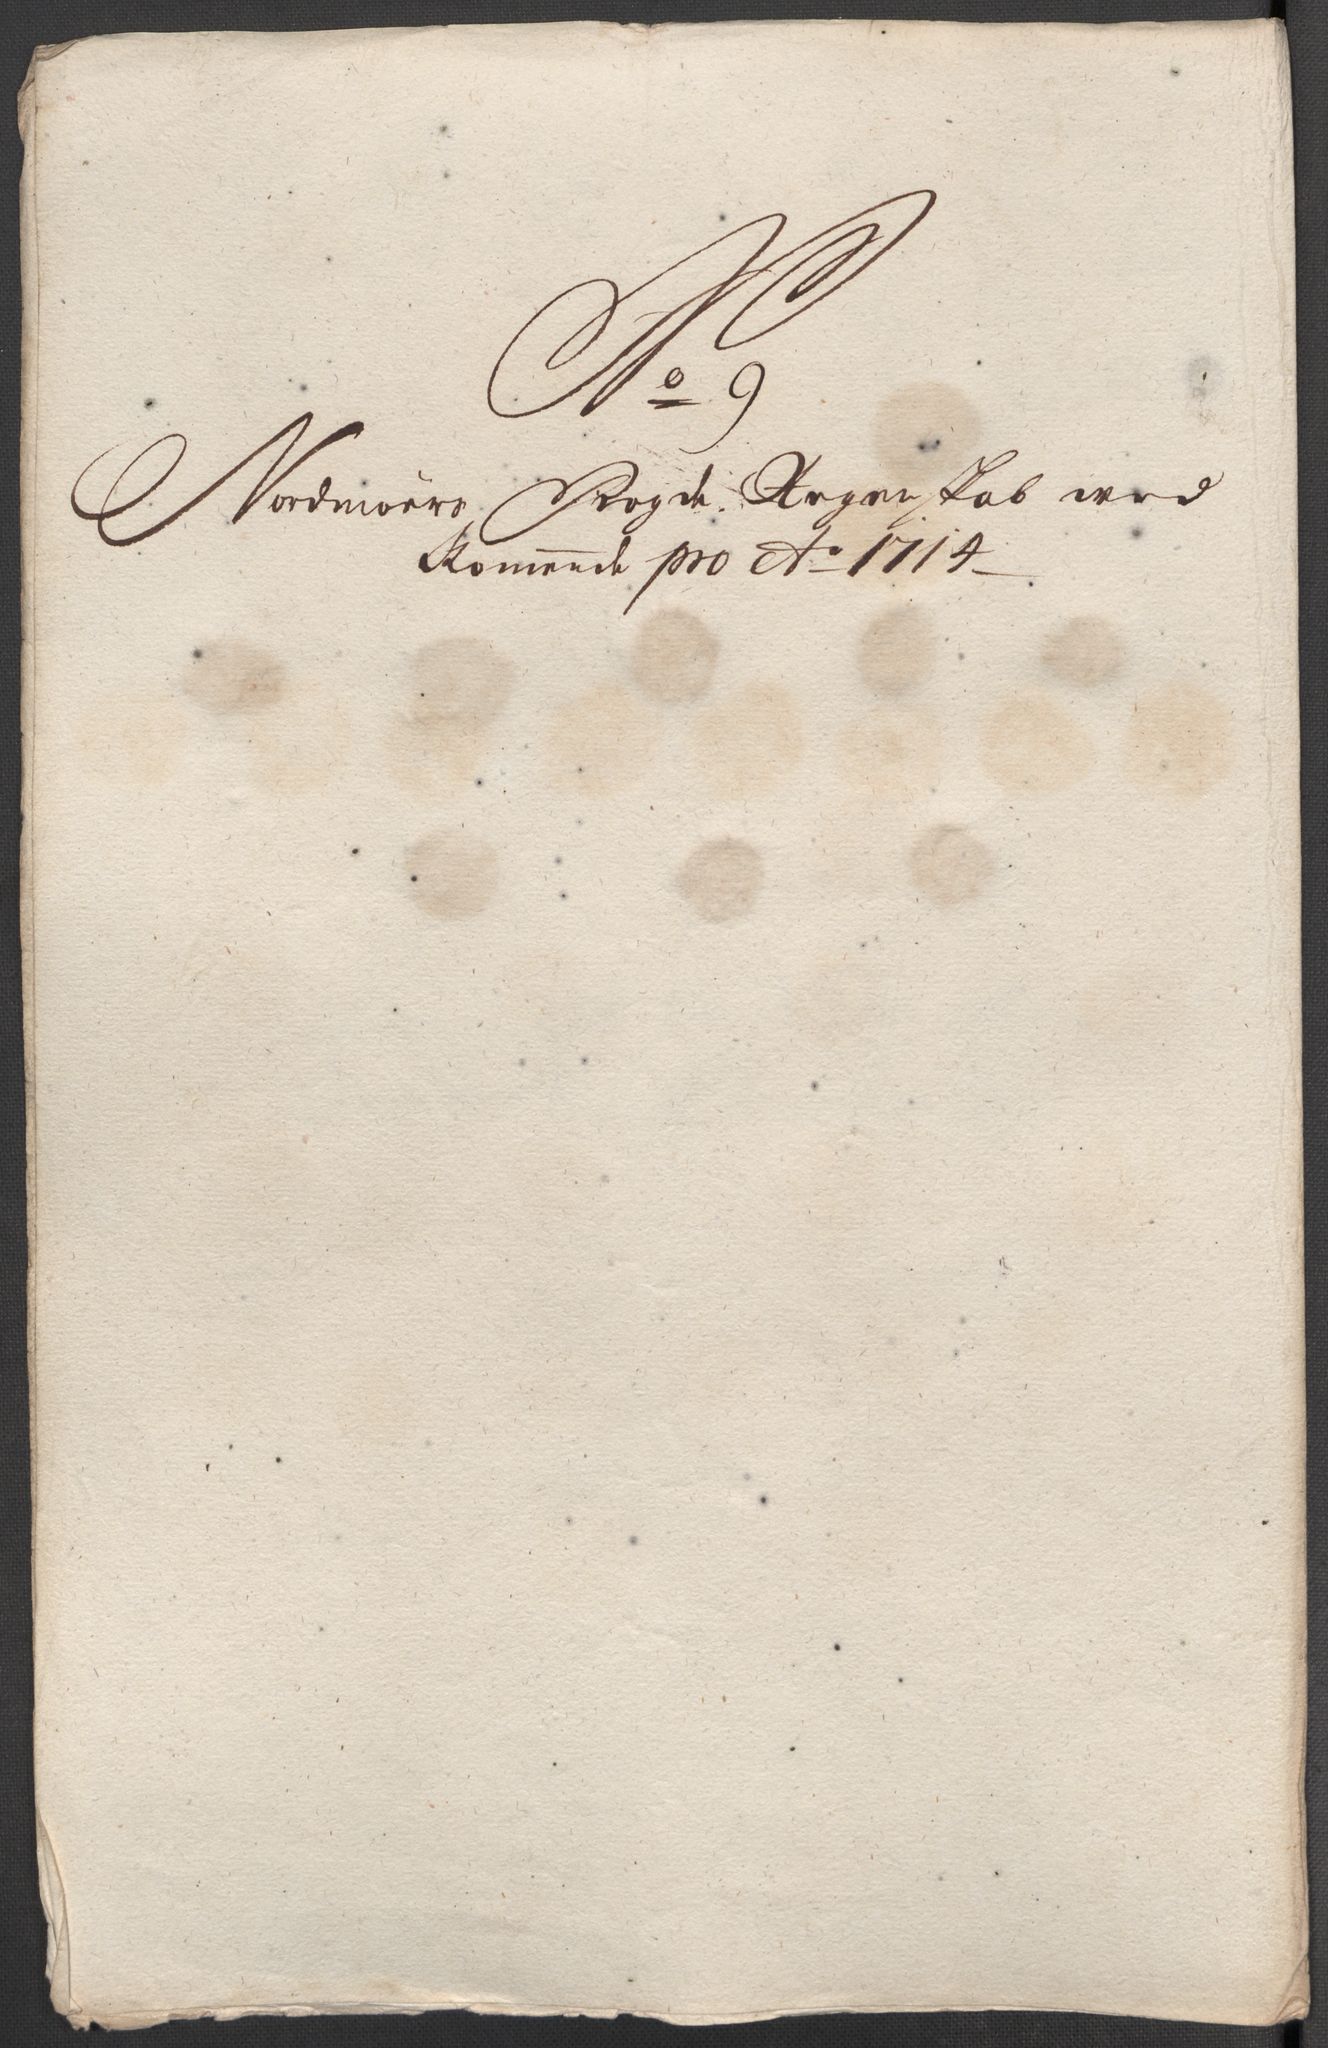 No 9
Nordmøers Fogde Regenskab ved
kom̄ende pro Ao 1714